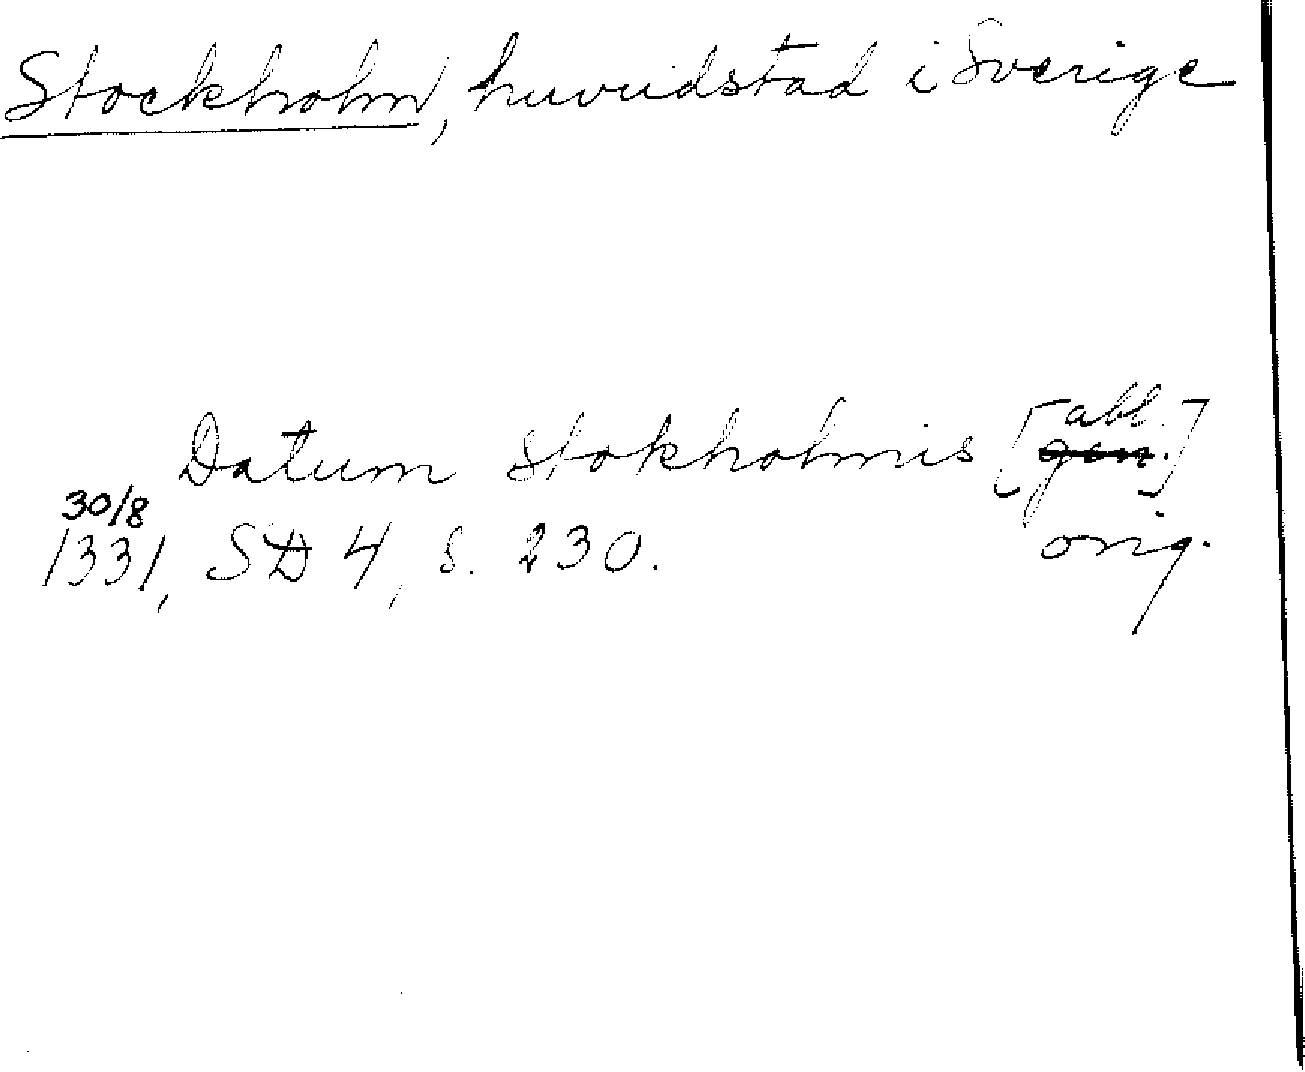 Stockholm, huvudstad i Sverige
Datum Stokholmis [abl. gen.]
30/8
1331, SD 4, s. 230. orig.